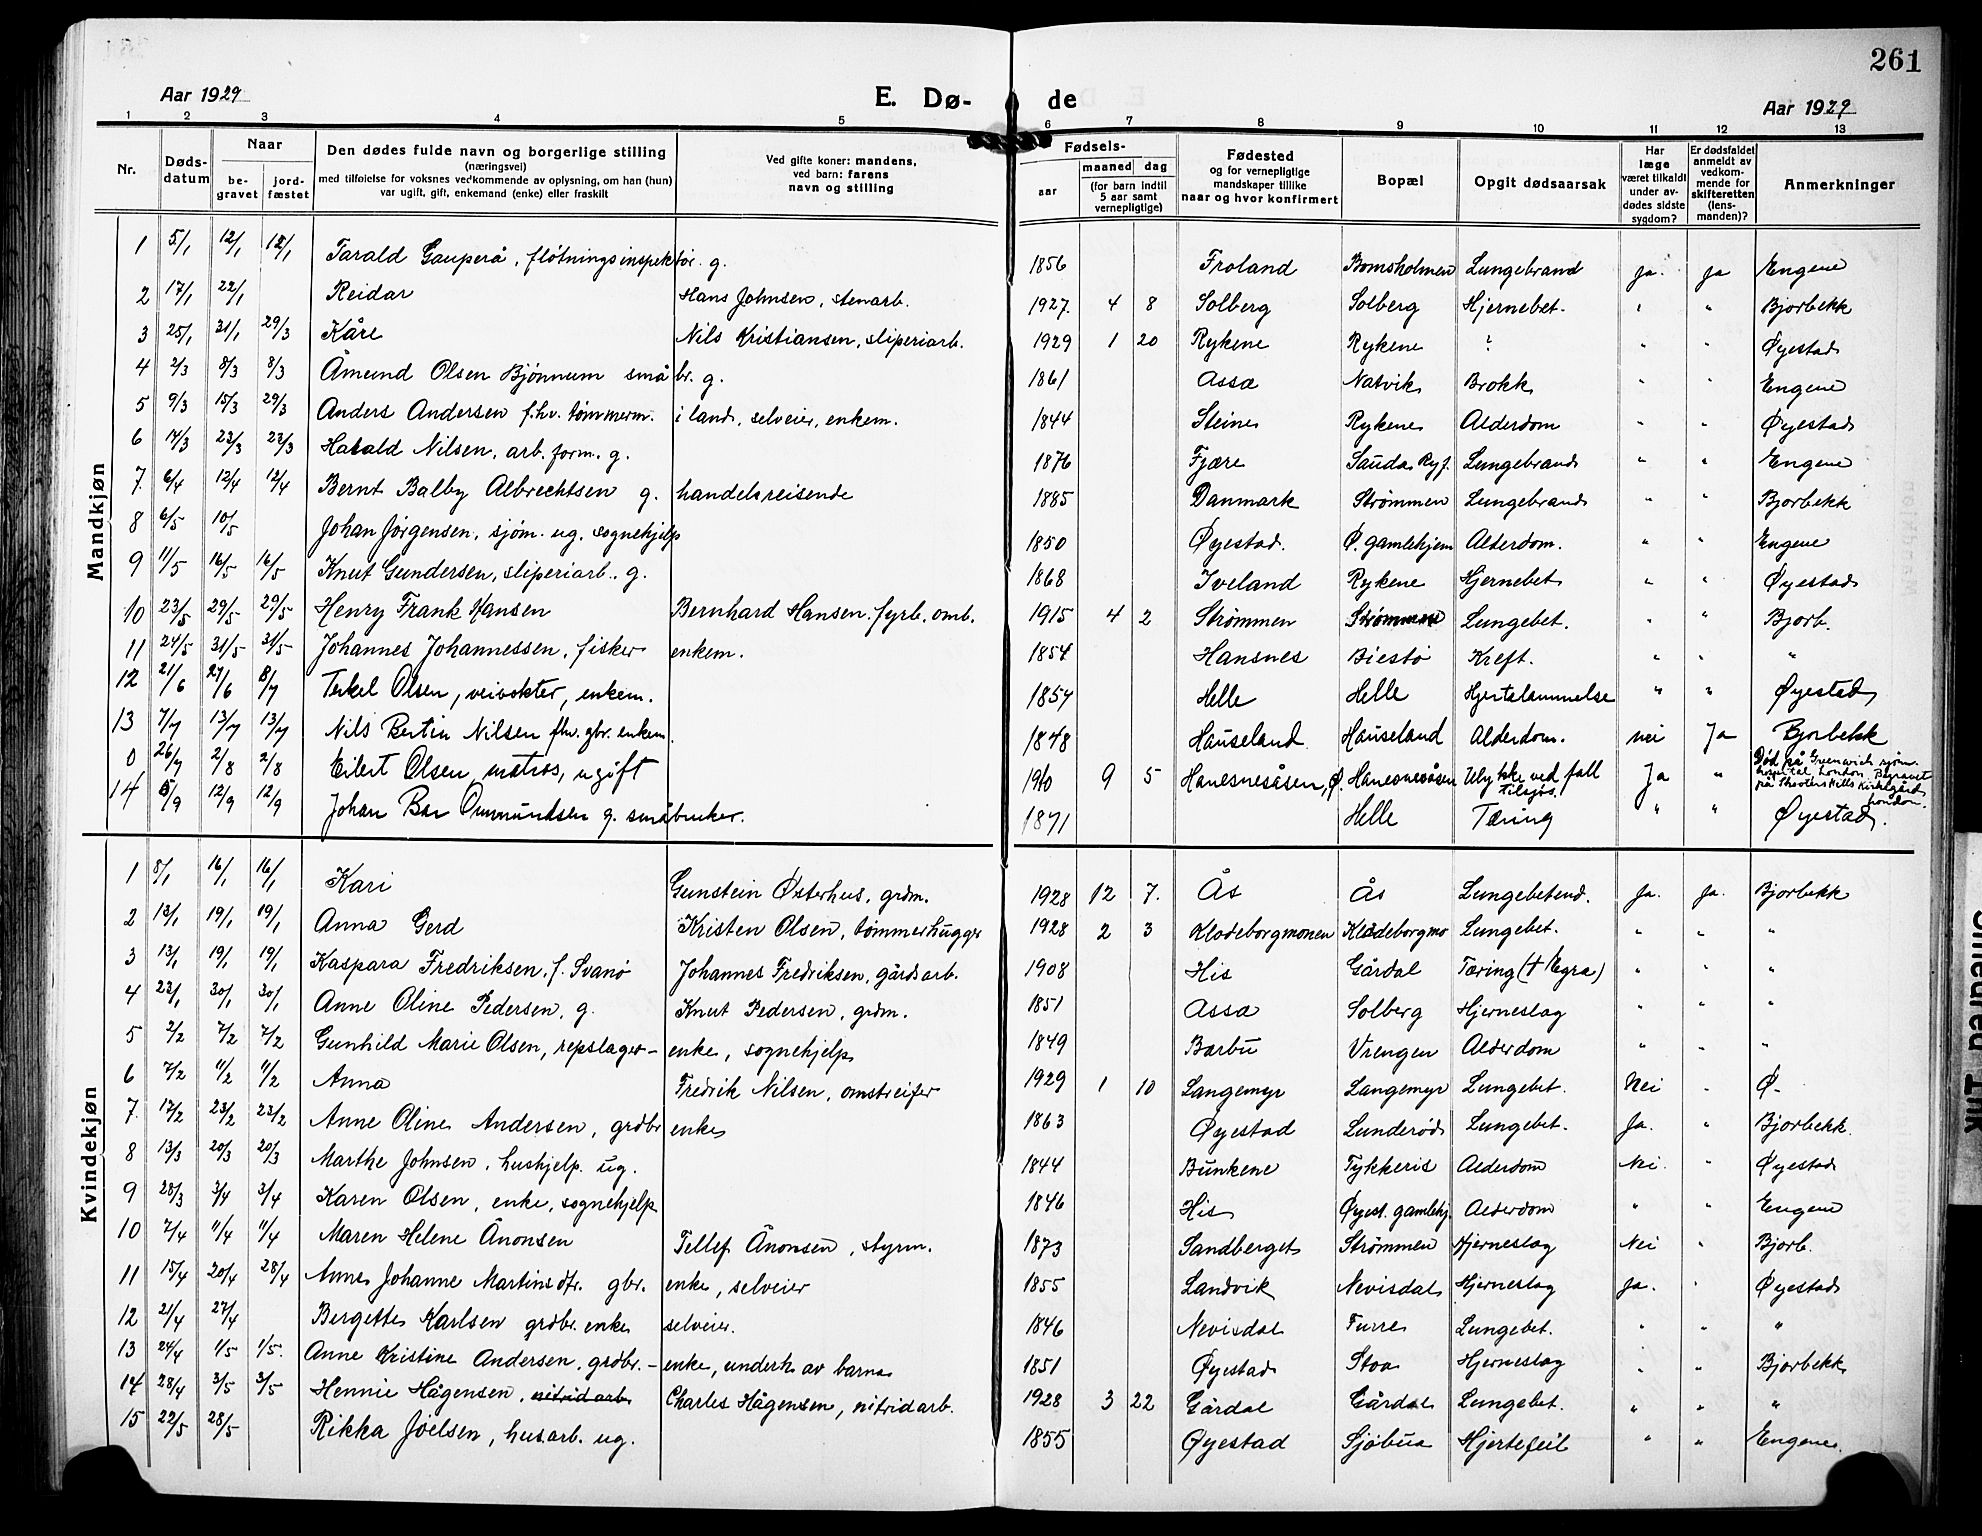 261
Aar 1929 E. Dø- de Aar 1929
1 2 3 4 5 6 7 8 9 10 11 12 13
Nr. Døds-datum Naar be-gravet jord-fæstet Den dødes fulde navn og borgerlige stilling (næringsvei) med tilføielse for voksnes vedkommende av oplysning, om han (hun) var ugift, gift, enkemand (enke) eller fraskilt Ved gifte koner: mandens, ved barn: farens navn og stilling Fødsels- aar maaned dag (for barn indtil 5 aar samt vernepligtige) Fødested og for vernepligtige mandskaper tillike naar og hvor konfirmert Bopæl Opgit dødsaarsak Har læge været tilkaldt under av-dødes sidste sygdom? Er dødsfaldet anmeldt av vedkom-mende for skifteretten (lens-manden)? Anmerkninger
Mandkjøn
1 5/1 12/1 12/1 Tarald Gauperå, fløtningsinspektør. g. 1856 Froland Bomsholmen Lungebrand ja. ja Engene
2 17/1 22/1 Reidar Hans Johnsen, stenarb. 1927. 4 8 Solberg Solberg Hjernebet. " " Bjorbekk
3 25/1 31/1 29/3 Kåre Nils Kristiansen, sliperiarb. 1929 1 20 Rykene Rykene ? " " Øyestad
4 2/3 8/3 8/3 Åmund Olsen Bjønnum småbr. g. 1861 Assa Natvik Brokk " " Engene
5 9/3 15/3 29/3 Anders Andersen f.hv. tømmerm. i land, selveier, enkem. 1844 Steine Rykene Alderdom " " Øyestad
6 14/3 23/3 23/3 Harald Nilsen, arb. form. g. 1876 Fjære Sauda Ryf. Lungebrand " " Engene
7 6/4 12/4 12/4 Bernt Balby Albrechtsen g. handelsreisende 1885 Danmark Strømmen Lungebrand " " Bjorbekk
8 6/5 10/5 Johan Jørgensen, sjøm. ug. sognehjelp 1850 Øyestad. Ø. gamlehjem Alderdom. " " Engene
9 11/5 16/5 16/5 Knut Gundersen, sliperiarb. g. 1868 Iveland Rykene Hjernebet " " Øyestad
10 23/5 29/5 29/5 Henry Frank Hansen Bernhard Hansen. fyrb. omb. 1915 4 2 Strømmen Strømmen Lungebet. " " Bjorb.
11 24/5 31/5 31/5 Johannes Johannessen, fisker enkem. 1854 Hansnes Biestø Kreft. " " "
12 21/6 27/6 8/7 Terkel Olsen, veivokter, enkem. 1857 Helle Helle Hjertelammelse " " Øyestad
13 7/7 13/7 13/7 Nils Bertin Nilsen fhv. gbr. enkem. 1848 Hauseland Hauseland Alderdom. nei Ja Bjorbekk
0 26/7 2/8 2/8 Eilert Olsen, matros, ugift 1910 9 5 Hanesnesåsen, Ø. Hanesnesåsen Ulykke ved fall tilsjøs. Ja " Død på Greenwich sjøm. hospital London. Begravet på Shooters Hills Kirkegård London.
14 5/9 12/9 12/9 Johan Ommundsen g. småbruker. 1871 Helle Tæring " " Øyestad.
Kvindekjøn
1 8/1 16/1 16/1 Kari Gunstein Østerhus, grdm. 1928 12 7. Ås Ås Lungebetend. Ja. Ja. Bjorbekk
2 13/1 19/1 19/1 Anna Gerd Kristen Olsen, tømmerhugger 1928 2 3 Klodeborgmonen Klodeborgmo Lungebet. " " "
3 13/1 19/1 19/1 Kaspara Fredriksen, f. Svanø Johannes Fredriksen, gårdsarb. 1908 His Gårdal Tæring († Egra) " " "
4 23/1 30/1 30/1 Anne Oline Pedersen, g. Knut Pedersen, grdm. 1851 Assa Solberg Hjerneslag " " "
5 2/2 7/2 7/2 Gunhild Marie Olsen, repslager- enke, sognehjelp 1849 Barbu Vrengen Alderdom " " "
6 7/2 11/2 11/2 Anna Fredrik Nilsen, omstreifer 1929 1 10 Langemyr Langemyr Lungebet. Nei " Ø-
7 17/2 23/2 23/2 Anne Oline Andersen, grdbr enke 1863 Øyestad Lunderød Lungebet. Ja. " Bjorbekk.
8 13/3 20/3 20/3 Marthe Johnsen, hushjelp. ug. 1844 Bunkene Tykkeris Alderdom Nei. " Øyestad
9 28/3 3/4 3/4 Karen Olsen, enke, sognehjelp 1846 His Øyest. gamlehj. Alderdom " " Engene
10 7/4 11/4 11/4 Maren Helene Ånonsen Tellef Ånonsen, styrm. 1873 Sandberget Strømmen Hjerneslag Nei " Bjorb.
11 15/4 20/4 28/4 Anne Johanne Martinsdtr. gbr. enke, selveier 1855 Landvik Nevisdal Hjerneslag Ja. " Øyestad
12 21/4 27/4 Bergette Karlsen grdbr. enke selveier. 1846 Nevisdal Furre Lungebet. " " "
13 24/4 1/5 1/5. Anne Kristine Andersen, grdbr.- enke, underh. av barna 1851 Øyestad Stoa Hjerneslag " " Bjorbekk
14 28/4 3/5 3/5 Hennie Hågensen, nitridarb Charles Hågensen, nitridarb. 1928 3 22 Gårdal Gårdal Lungebet. " " "
15 22/5 28/5 Rikka Joelsen, husarb. ug. 1855 Øyestad Sjøbua Hjertefeil " " Engene.